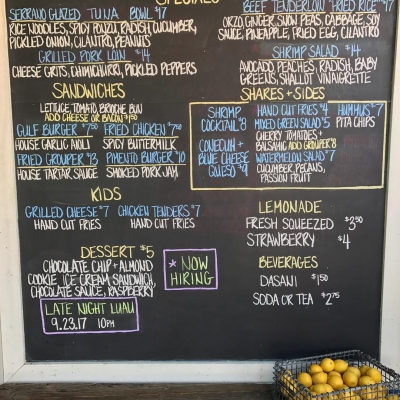 SPECIALS
SERRANO GLAZED TUNA BOWL $17
RICE NOODLES, SPICY PONZU, RADISH, CUCUMBER,
PICKLED ONION, CILANTRO, PEANUTS
GRILLED PORK LOIN $14
CHEESE GRITS, CHIMICHIRRI, PICKLED PEPPERS
BEEF TENDERLOIN "FRIED RICE" $17
ORZO, GINGER, SNOW PEAS, CABBAGE, SOY
SAUCE, PINEAPPLE, FRIED EGG, CILANTRO
SHRIMP SALAD $14
AVOCADO, PEACHES, RADISH, BABY
GREENS, SHALLOT VINAIGRETTE
SANDWICHES
LETTUCE, TOMATO, BRIOCHE BUN
ADD CHEESE OR BACON $1.50
GULF BURGER $7.50
HOUSE GARLIC AIOLI
FRIED CHICKEN $7.50
SPICY BUTTERMILK
FRIED GROUPER $13
HOUSE TARTAR SAUCE
PIMENTO BURGER $10
SMOKED PORK JAM
SHARES + SIDES
SHRIMP
COCKTAIL $8
CONECUH +
BLUE CHEESE
QUESO $9
HAND CUT FRIES $4
MIXED GREEN SALAD $5
CHERRY TOMATOES +
BALSAMIC ADD GROUPER $8
WATERMELON SALAD $7
CUCUMBER, PECANS,
PASSION FRUIT
HUMMUS $7
PITA CHIPS
KIDS
GRILLED CHEESE $7
HAND CUT FRIES
CHICKEN TENDERS $7
HAND CUT FRIES
LEMONADE
FRESH SQUEEZED $3.50
STRAWBERRY $4
DESSERT $5
CHOCOLATE CHIP + ALMOND
COOKIE ICE CREAM SANDWICH,
CHOCOLATE SAUCE, RASPBERRY
* NOW
HIRING
BEVERAGES
DASANI $1.50
SODA OR TEA $2.75
LATE NIGHT LUAU
9.23.17 10PM